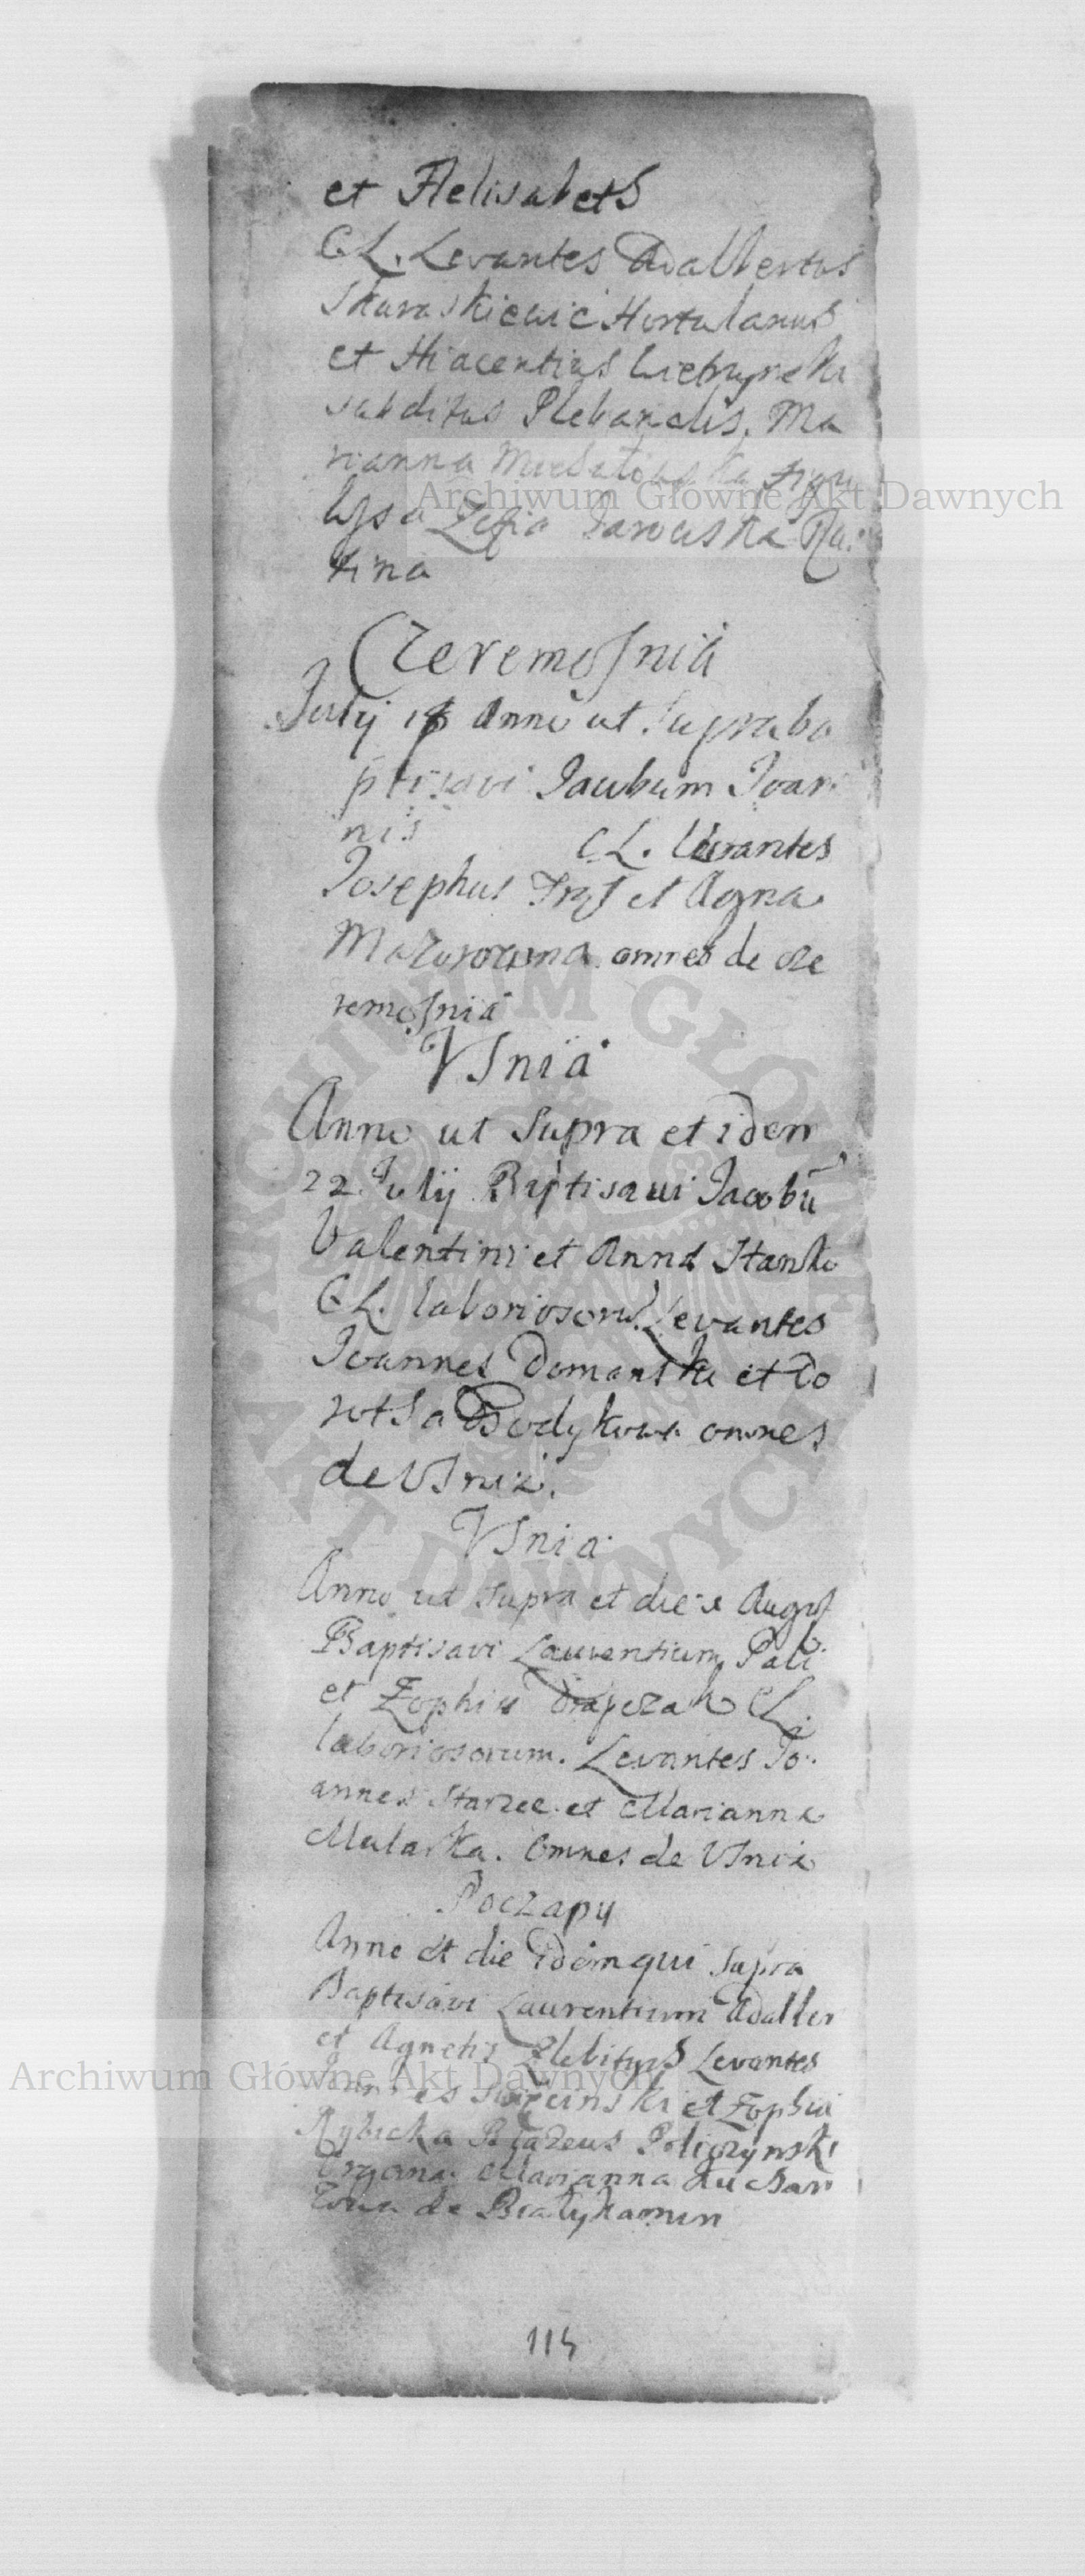 et Helisabeth
CL. Levantes Adalbertus
Skuraskiewic Hortulanus
et Hiacentius
subditus Plebanalis. Ma
rianna
Zofia
tina
Czeremosnia
Julij 18 Anno ut supra ba
ptisavi Jacubum Joan
nis CL. Levantes
Josephus et Agna
omnes de cze
remosnia
Usnia
Anno ut supra et idem
22 Julij Baptisavi Jacobū
Valentini et Anna Stanko
CL. laboriosorū. Levantes
Joannes Domanski et Do
rotha Bodykowa omnes
de Usnia.
Usnia
Anno ut supra et die Augus
Baptisavi Laurentium Pali
et Zophia CL.
laboriosorum. Levantes Jo
annes Starzec et Marianna
Mularka. Omnes de Usnia
Poczapy
Anno et die idem qui supra
Baptisavi Laurentium Adalber
et Agnetis Levantes
et Zophia
Rybicka Blazeus
Marianna
de Bialykamien
115
Archiwum Główne Akt Dawnych
Archiwum Główne Akt Dawnych
ARCHIWUM GŁÓWNE AKT DAWNYCH